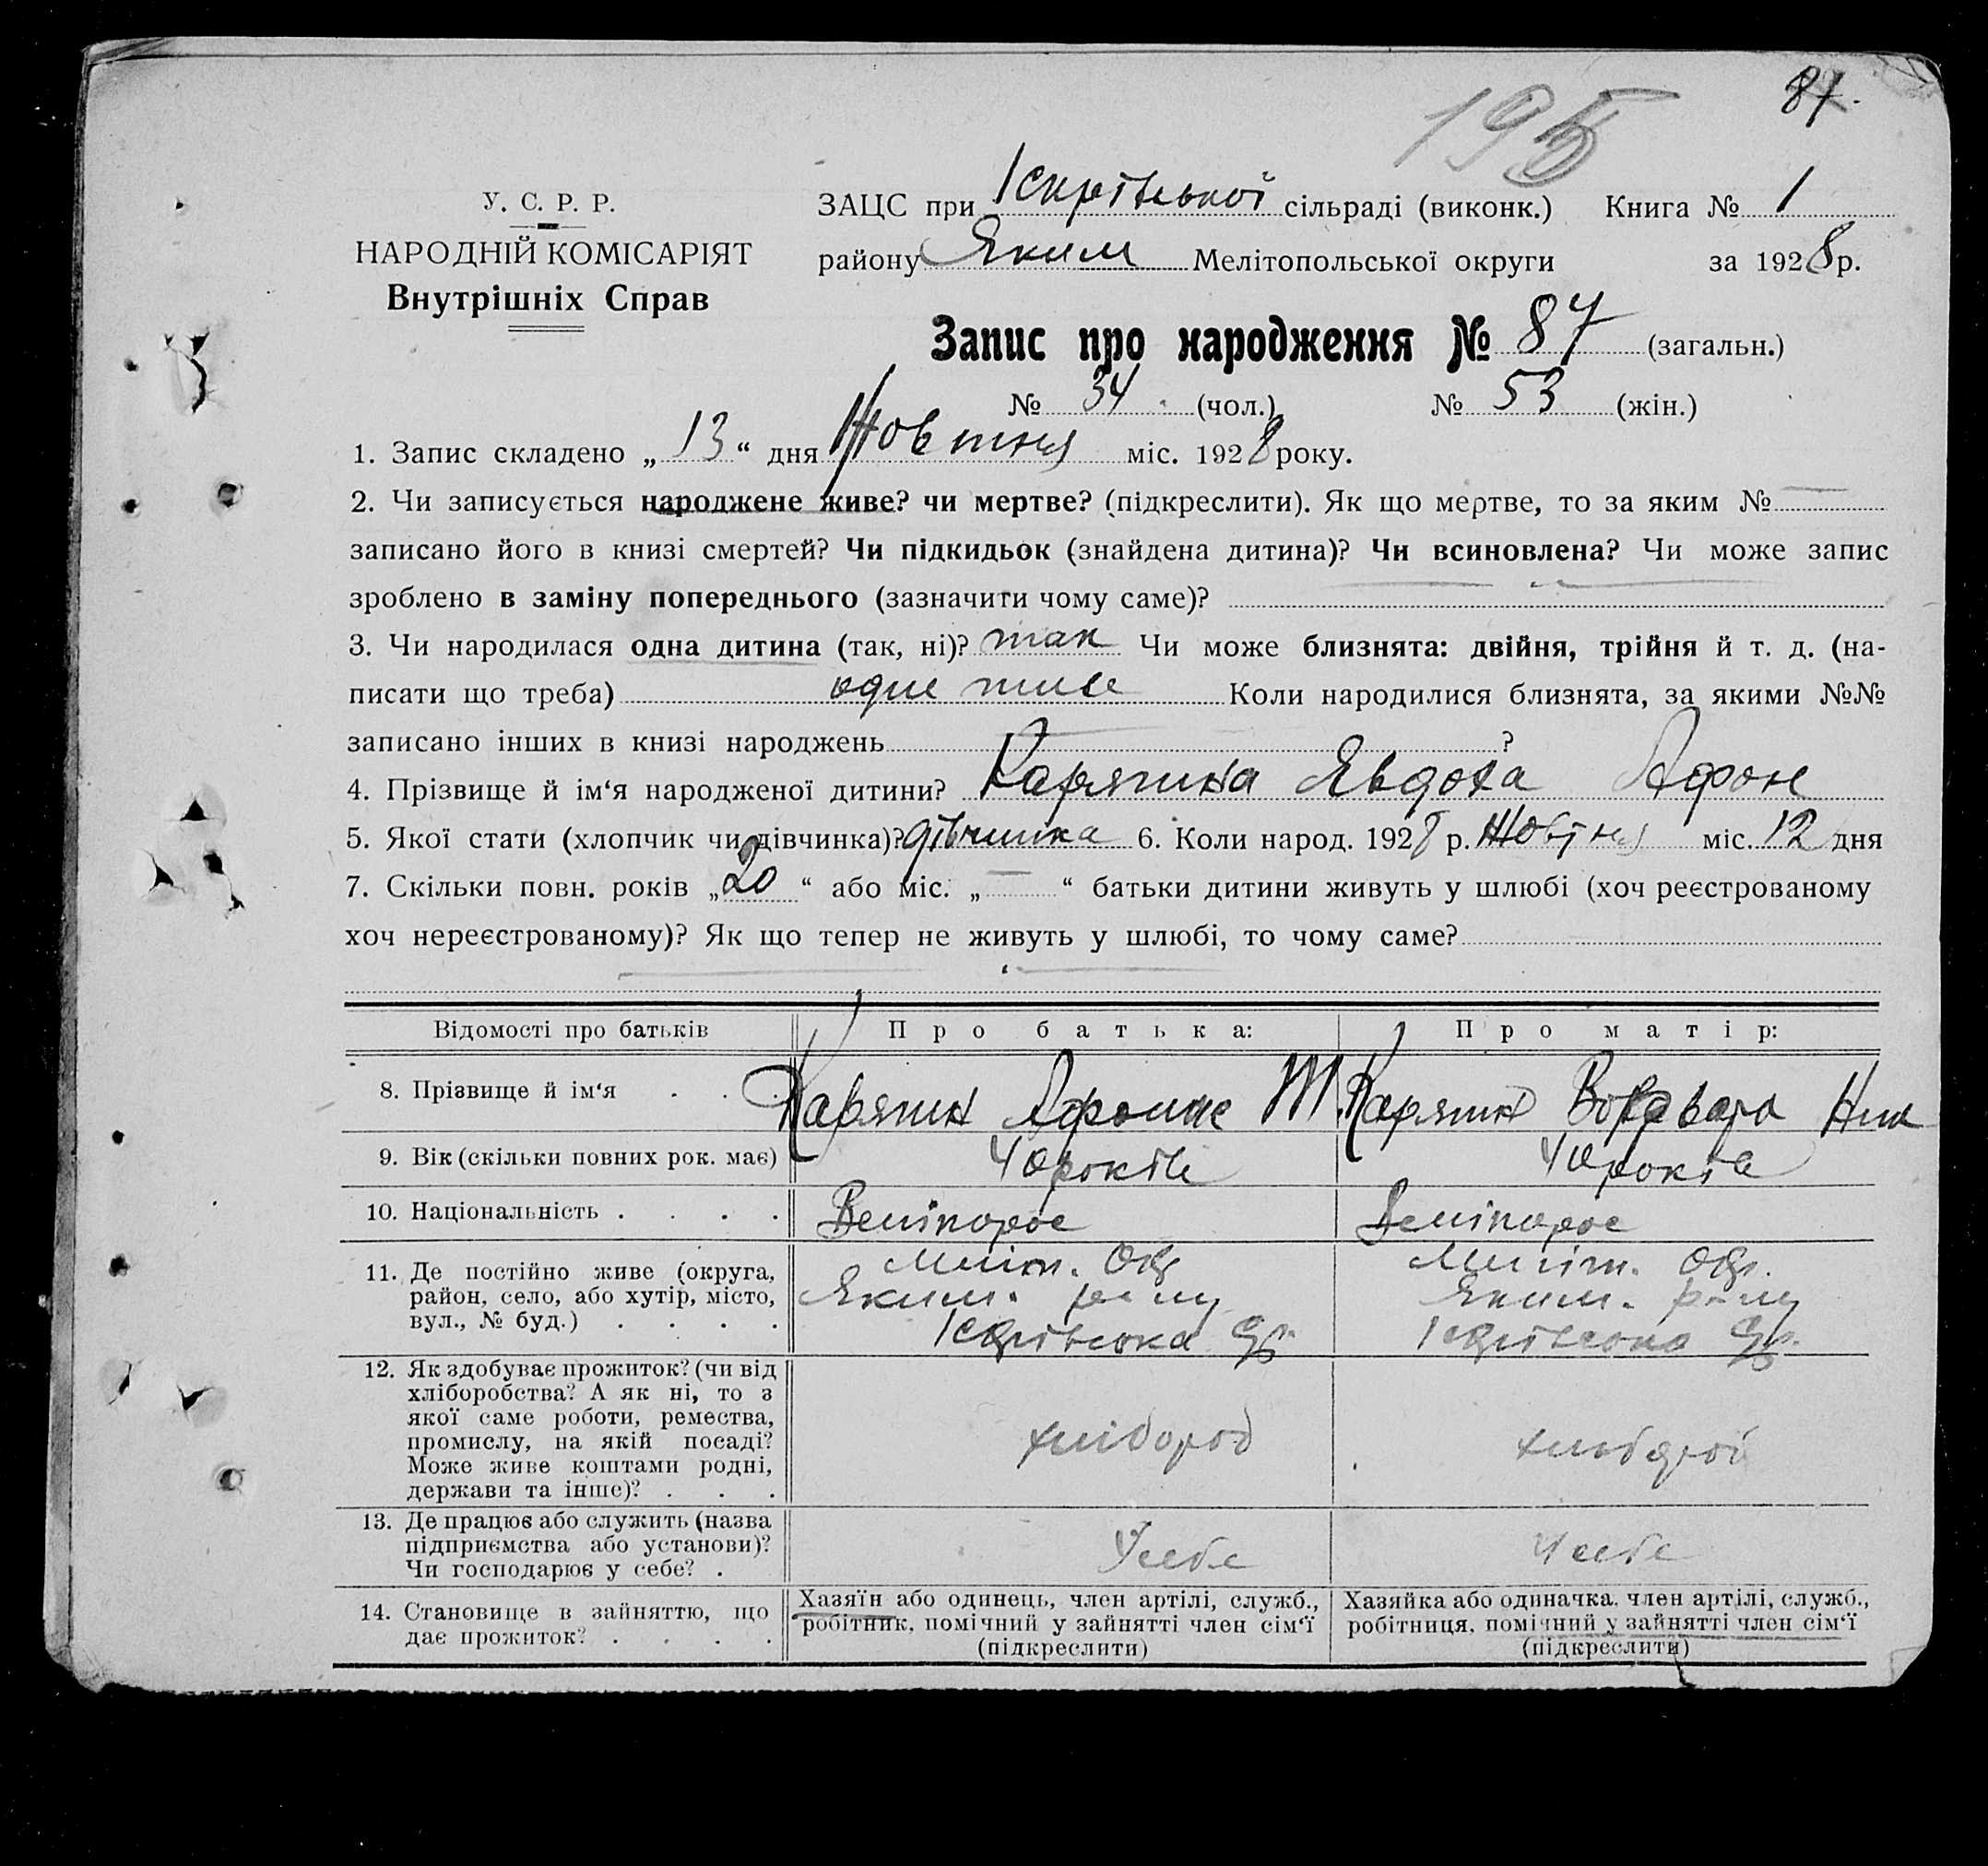 195
87.
У. С. Р. Р.
НАРОДНІЙ КОМІСАРІЯТ
Внутрішніх Справ
ЗАЦС при сільраді (виконк.) Книга № 1
району Яким Мелітопольської округи за 1928 р.
Запис про народження № 87 (загальн.)
№ 34 (чол.) № 53 (жін.)
1. Запис складено „13“ дня Жовтня міс. 1928 року.
2. Чи записується народжене живе? чи мертве? (підкреслити). Як що мертве, то за яким № —
записано його в книзі смертей? Чи підкидьок (знайдена дитина)? Чи всиновлена? Чи може запис
зроблено в заміну попереднього (зазначити чому саме)?
3. Чи народилася одна дитина (так, ні)? так Чи може близнята: двійня, трійня й т. д. (на-
писати що треба) Коли народилися близнята, за якими №№
записано інших в книзі народжень ?
4. Прізвище й ім‘я народженої дитини? Карягина Явдоха Афон
5. Якої стати (хлопчик чи дівчинка)? дівчинка 6. Коли народ. 1928 р. Жовтня міс. 12 дня
7. Скільки повн. років „20“ або міс. „—“ батьки дитини живуть у шлюбі (хоч реєстрованому
хоч нереєстрованому)? Як що тепер не живуть у шлюбі, то чому саме?
Відомості про батьків Про батька: Про матір:
8. Прізвище й ім‘я . . . Карягин Т. Карягин Вор вара
9. Вік (скільки повних рок. має) 40 років 40 років
10. Національність . . . . Велікорос Велікорос
11. Де постійно живе (округа,
район, село, або хутір, місто,
вул., № буд.) . . . .
Меліт. Окр.
Яким. р-ну
Меліт. Окр.
Яким. р-ну
12. Як здобуває прожиток? (чи від
хліборобства? А як ні, то з
якої саме роботи, ремества,
промислу, на якій посаді?
Може живе коштами родні,
держави та інше)? . . .
хлібороб
13. Де працює або служить (назва
підприємства або установи)?
Чи господарює у себе? .
У себе У себе
14. Становище в зайняттю, що
дає прожиток? . . . .
Хазяїн або одинець, член артілі, служб.,
робітник, помічний у зайнятті член сім‘ї
(підкреслити)
Хазяйка або одиначка, член артілі, служб.,
робітниця, помічний у зайнятті член сім‘ї
(підкреслити)